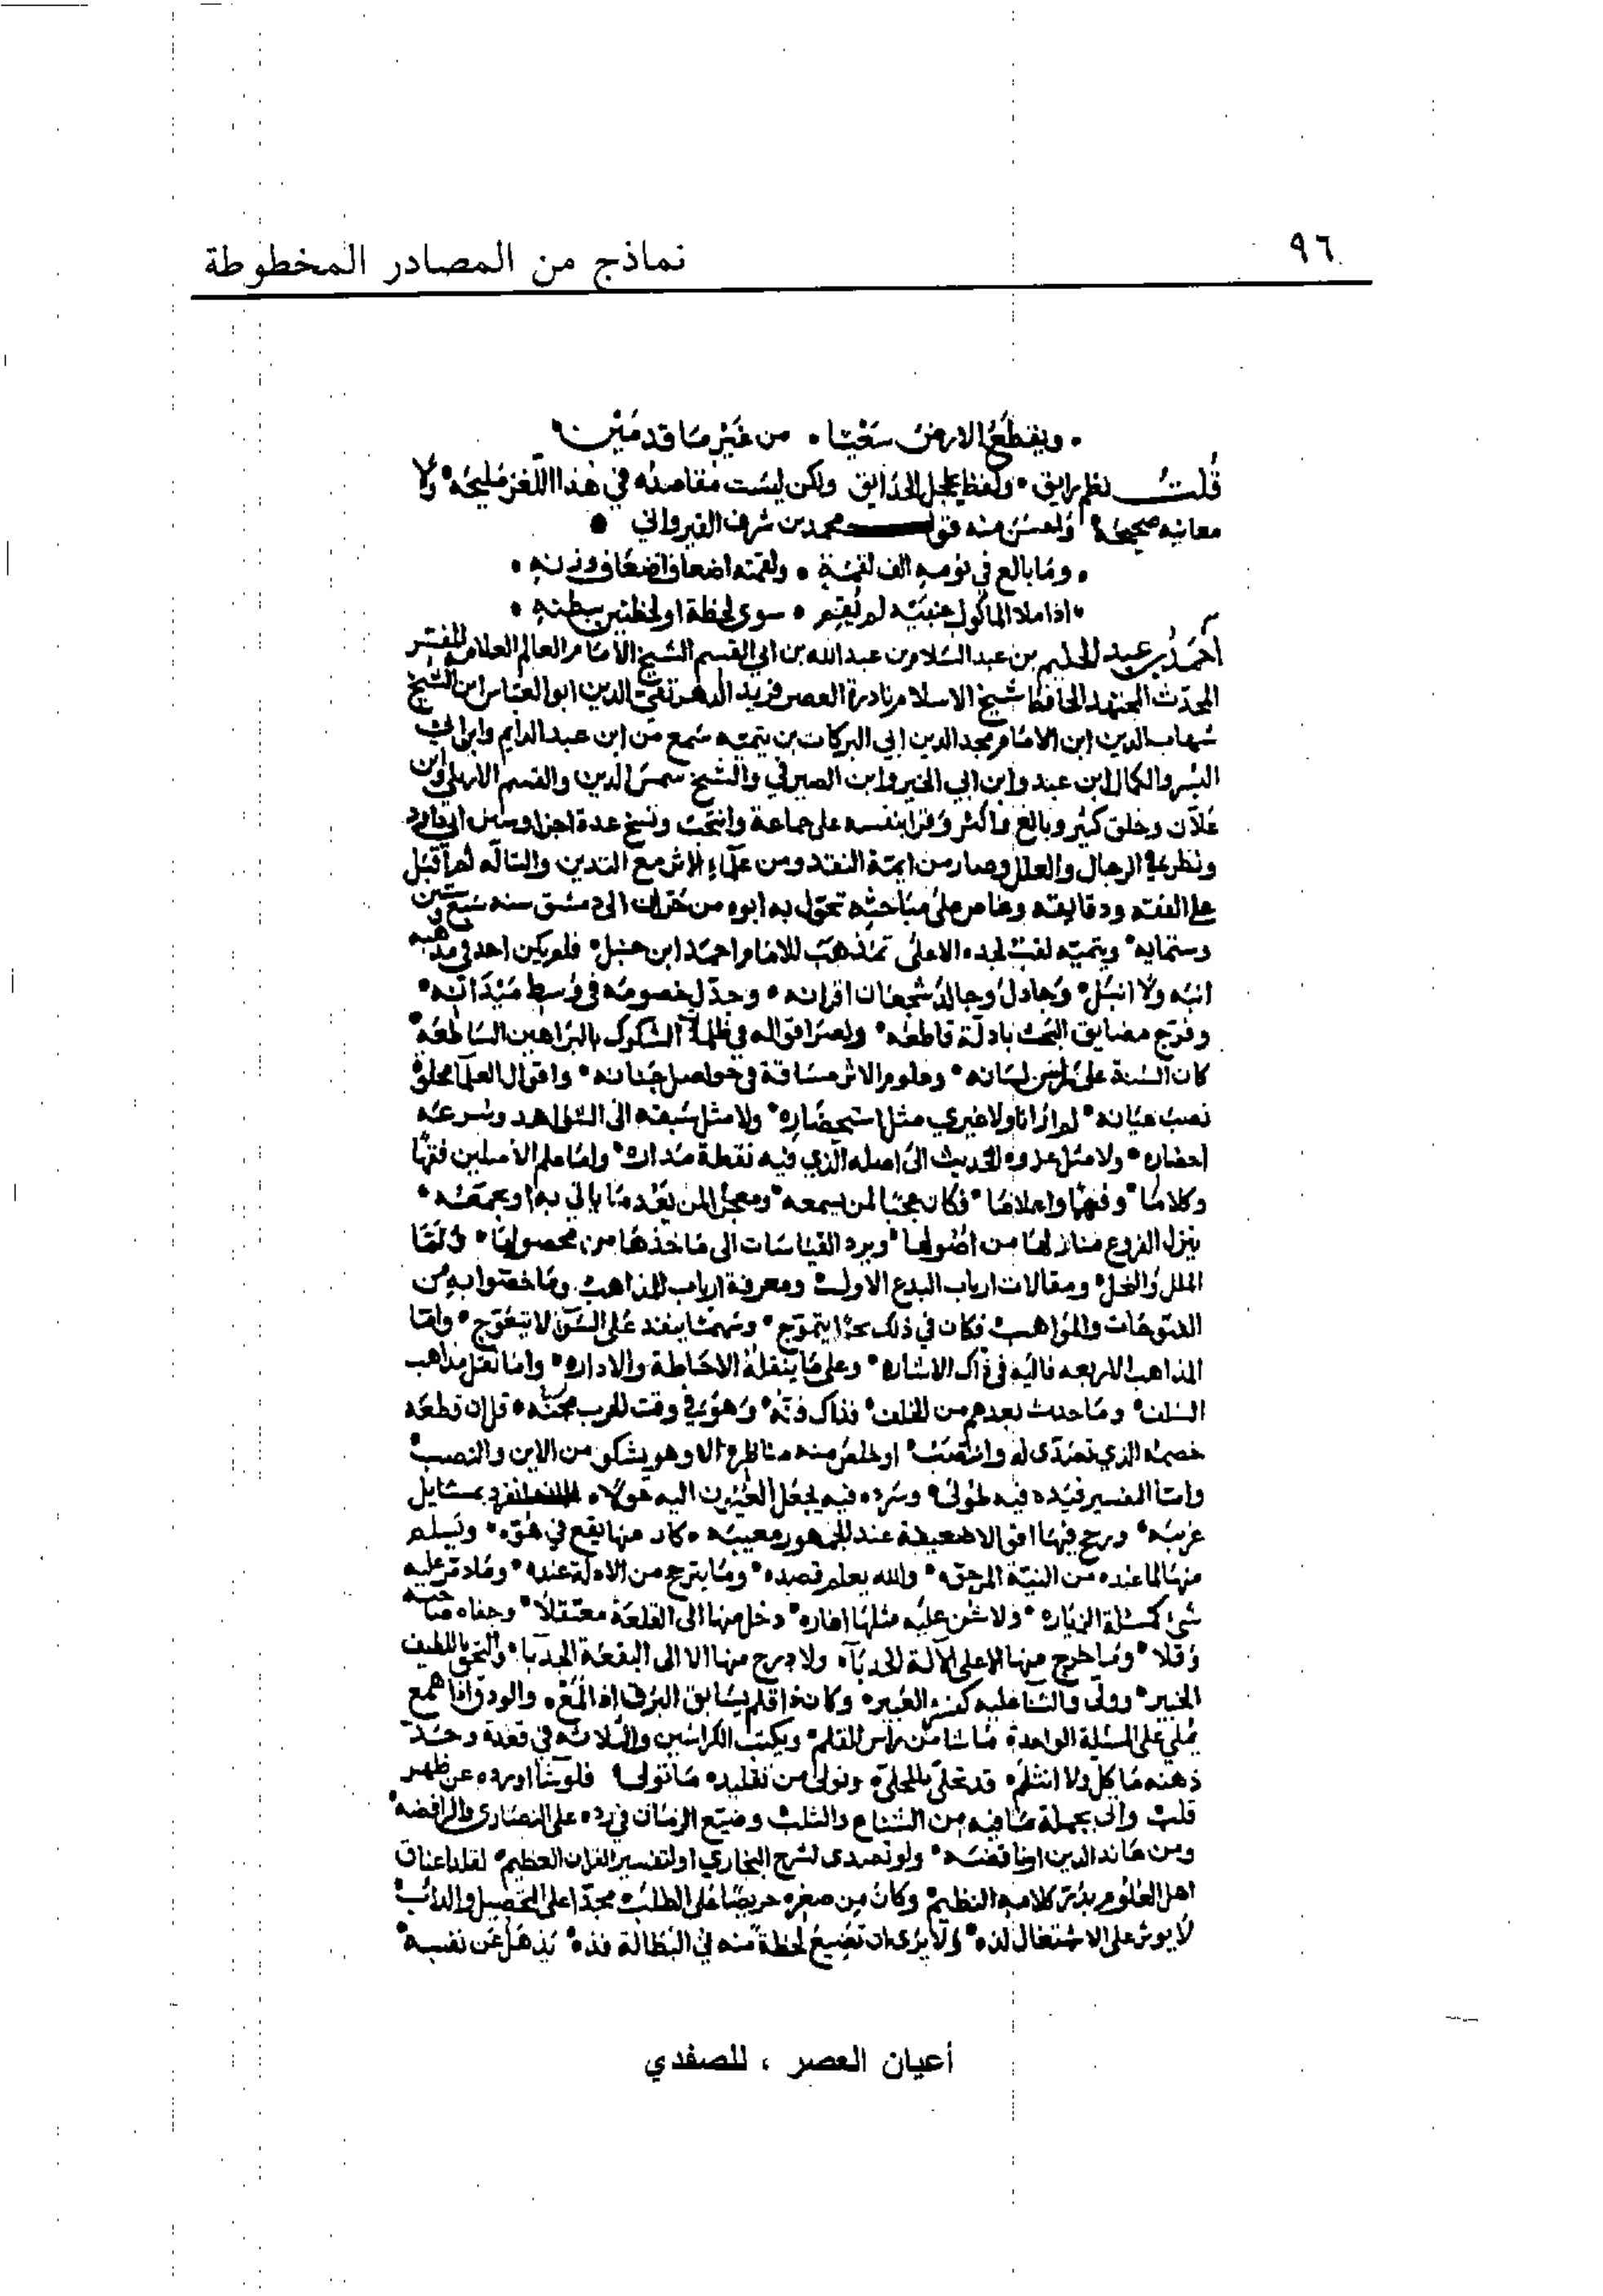 ٩٦
نماذج من المصادر المخطوطة
ويقطع الارض سعيا • من غير ما قدمين
قلت نظم رايق • ولفظ يخجل الحدايق ولكن ليست مقاصده في هذا اللغز مليحة • ولا
معانيه صحيحة • واحسن منه قول محمد بن شرف القيرواني •
• وما بالع في نومه الف لقمة • ولقمته اضعاف اضعاف وزنه •
• اذا ملا الماكول جنبيه لم يقم • سوى لحظة او لحظتين ببطنه •
احمد بن عبد الحليم بن عبد السلام بن عبد الله بن ابي القسم الشيخ الامام العالم العلامة المفسر
المحدث المجتهد الحافظ شيخ الاسلام نادرة العصر فريد الدهر تقي الدين ابو العباس ابن الشيخ
شهاب الدين ابن الامام مجد الدين ابي البركات بن تيميه سمع من ابن عبد الدايم وابن ابي
اليسر والكمال ابن عبد وابن ابي الخير وابن الصيرفي والشيخ شمس الدين والقسم الاربلي وابن
علان وخلق كثير وبالغ واكثر وقرا بنفسه على جماعة وانتخب ونسخ عدة اجزا وسنن ابي داود
ونظر في الرجال والعلل وصار من ايمة النقد ومن علماء الاثر مع التدين والتاله ثم اقبل
على الفقه ودقايقه وغاص على مباحثه تحول به ابوه من حران الى دمشق سنه سبع وستين
وستمايه • وتيميه لقب لجده الاعلى تمذهب للامام احمد ابن حنبل • فلم يكن احد في مذهبه
انبه ولا انبل • وجادل وجالد شجعان اقرانه • وجدل خصومه في وسط ميدانه •
وفرج مضايق البحث بادلة قاطعه • ونصر اقواله في ظلمات الشكوك بالبراهين الساطعه •
كان السنة على راس لسانه • وعلوم الاثر مساقة في حواصل جنانه • واقوال العلما مجلوة
نصب عيانه • لم ار انا ولا غيري مثل استحضاره • ولا مثل سبقه الى الشواهد وسرعه
احضاره • ولا مثل عزوه الحديث الى اصله الذي فيه نقطة مداره • واما علم الاصلين فقها
وكلاما • وفهما واعلاما • فكان عجبا لمن يسمعه • ومعجزا لمن يعد ما ياتي به او يجمعه •
ينزل الفروع منازلها من اصولها • ويرد القياسات الى ماخذها من محصولها • واما
الملل والنحل • ومقالات ارباب البدع الاول • ومعرفة ارباب المذاهب وما خصوا به من
الفتوحات والمواهب • فكان في ذلك بحرا يتموج • وسهما ينفذ على السوا لا يتعوج • واما
المذاهب الاربعه فاليه في ذاك الاشاره • وعلى ما ينقله الاحاطة والاداره • واما نقل مذاهب
السلف • وما حدث بعدهم من الخلف • فذاك فنه • وهو في وقت الحرب مجنه • قل ان قطعه
خصمه الذي تصدى له وانتصب • او خلص منه مناظره الا وهو يشكو من الاين والنصب •
واما التفسير فيده فيه طولى • وسرده فيه يجعل العيون اليه حولا • انفرد بمسايل
غريبه • ورجح فيها اقوالا ضعيفة عند الجمهور معيبه • كاد منها يقع في هوه • ويسلم
منها لما عنده من النية المرجوه • والله يعلم قصده • وما يترجح من الادلة عنده • وما دمر عليه
شي كمسئلة الزياره • ولا شن عليه مثلها اغاره • دخل منها الى القلعة معتقلا • وجفاه صاحبه
وقلا • وما خرج منها الا على الآلة الحدبا • ولا درج منها الا الى البقعة الجدبا • والتحق باللطيف
الخبير • وولى والثنا عليه كنشر العبير • وكان ذا قلم يسابق البرق اذا لمع • والودق اذا همع
يملي على المسئلة الواحدة ما شا من راس القلم • ويكتب الكراسين والثلاثه في قعدة وحد
ذهنه ما كل ولا انثلم • قد تحلى بالمحلى • وتولى من تقليده ما تولى • فلو شا اورده عن ظهر
قلب • واتى بجملة ما فيه من الشناع والثلب • وضيع الزمان في رده على النصارى والرافضه •
ومن عاند الدين او ناقضه • ولو تصدى لشرح البخاري او لتفسير القران العظيم • لقلد اعناق
اهل العلوم بدر كلامه النظيم • وكان من صغره حريصا على الطلب • مجدا على التحصيل والداب •
لا يوثر على الاشتغال لذه • ولا يرى ان تضيع لحظة منه في البطالة فذه • يذهل عن نفسه •
أعيان العصر ، للصفدي